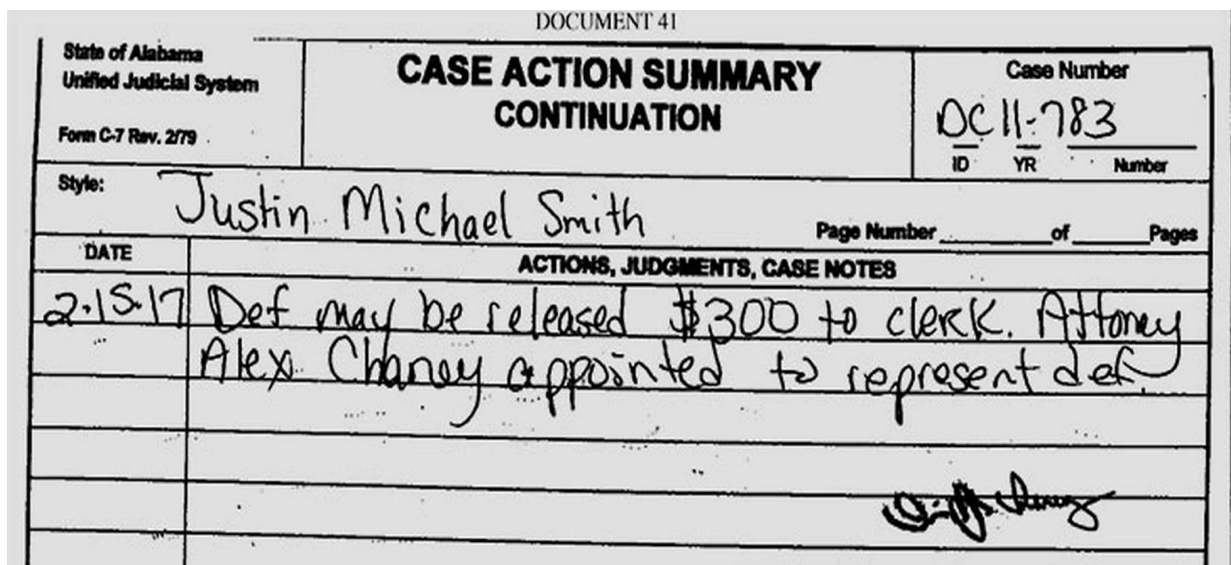 DOCUMENT 41
State of Alabama
Unified Judicial System
Form C-7 Rev. 2/79
CASE ACTION SUMMARY
CONTINUATION
Case Number
DC 11-783
ID YR Number
Style: Justin Michael Smith
Page Number ______ of ______ Pages
DATE
ACTIONS, JUDGMENTS, CASE NOTES
2-15-17 Def may be released $300 to clerk. Attoney
Alex Chaney appointed to represent def.